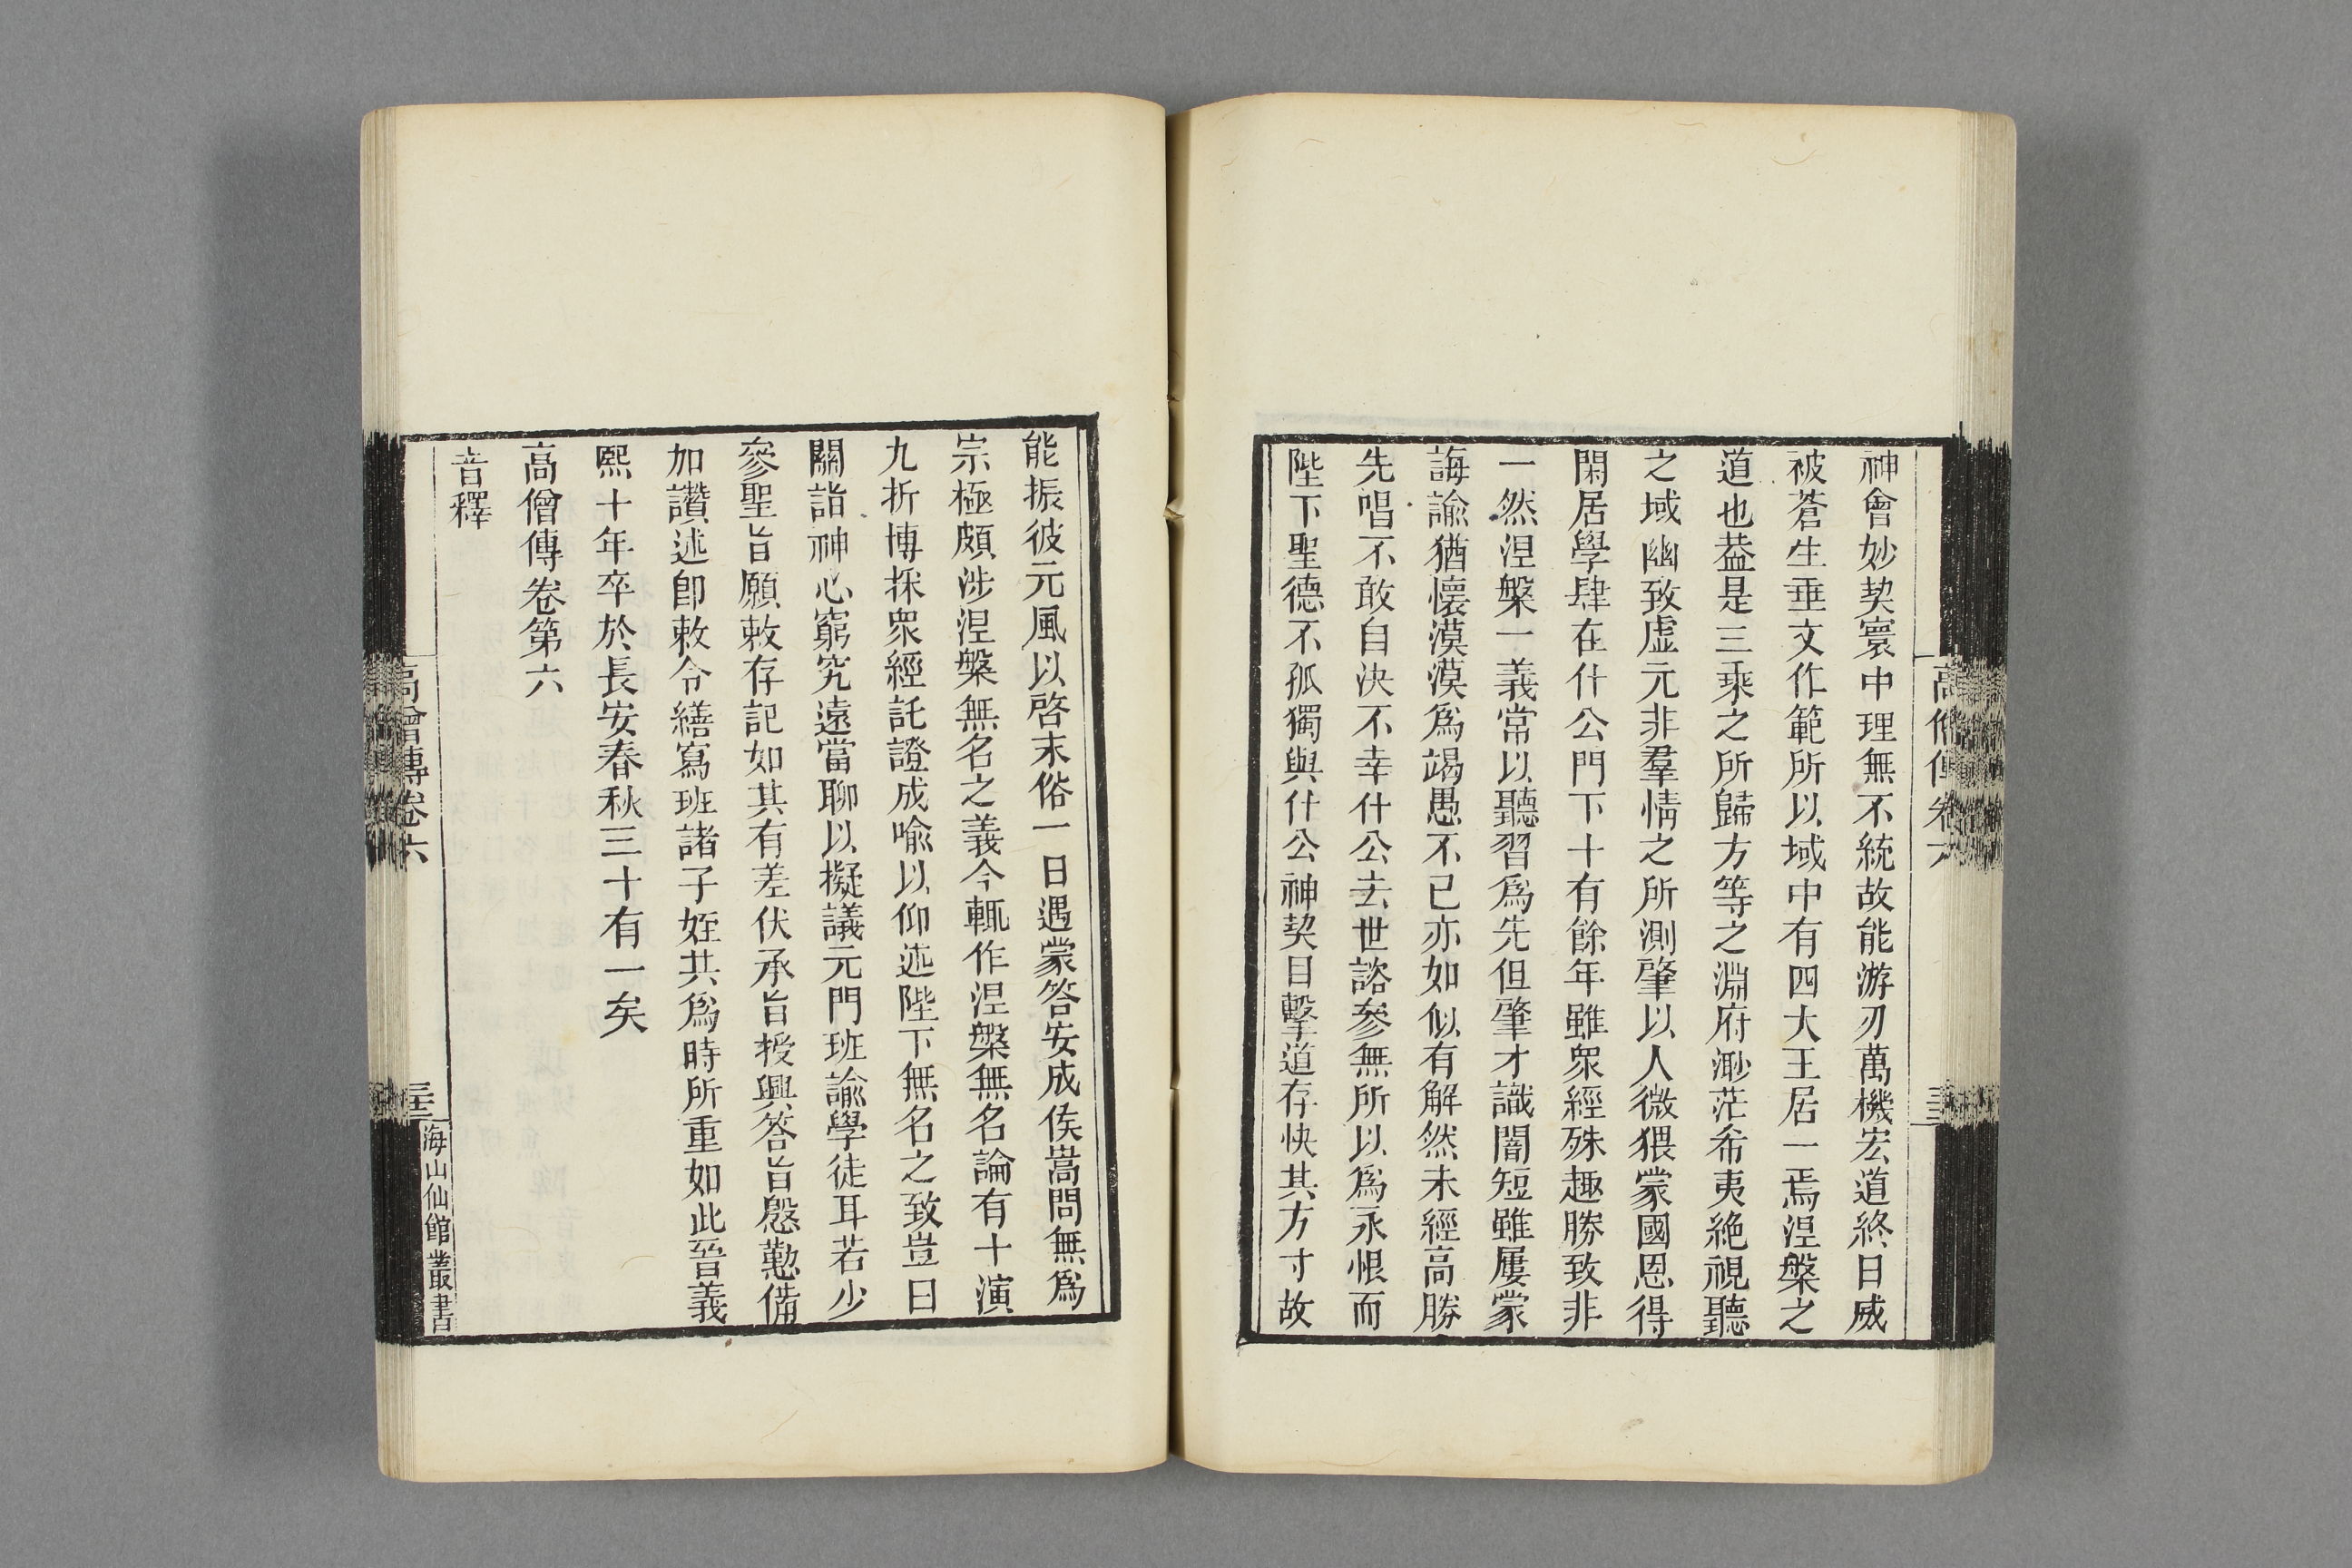 神會妙契寰中理無不統故能游刃萬機宏道終日威
被蒼生垂文作範所以域中有四大王居一焉涅槃之
道也葢是三乘之所歸方等之淵府渺茫希夷絶視聽
之域幽致虛元非羣情之所測肇以人微猥蒙國恩得
閑居學肆在什公門下十有餘年雖衆經殊趣勝致非
一然涅槃一義常以聽習爲先但肇才識闇短雖屢蒙
誨諭猶懷漠漠爲竭愚不已亦如似有解然未經高勝
先唱不敢自決不幸什公去世諮參無所以爲永恨而
陛下聖德不孤獨與什公神契目擊道存快其方寸故
高僧傳卷六
能振彼元風以啓末俗一日遇蒙答安成侯嵩問無爲
宗極頗涉涅槃無名之義今輒作涅槃無名論有十演
九折博採衆經託證成喻以仰述陛下無名之致豈曰
關詣神心窮究遠當聊以擬議元門班諭學徒耳若少
參聖旨願敕存記如其有差伏承旨授興答旨慇懃備
加讚述卽敕令繕寫班諸子姪共爲時所重如此晉義
熙十年卒於長安春秋三十有一矣
高僧傳卷第六
音釋
高僧傳卷六
海山仙館叢書